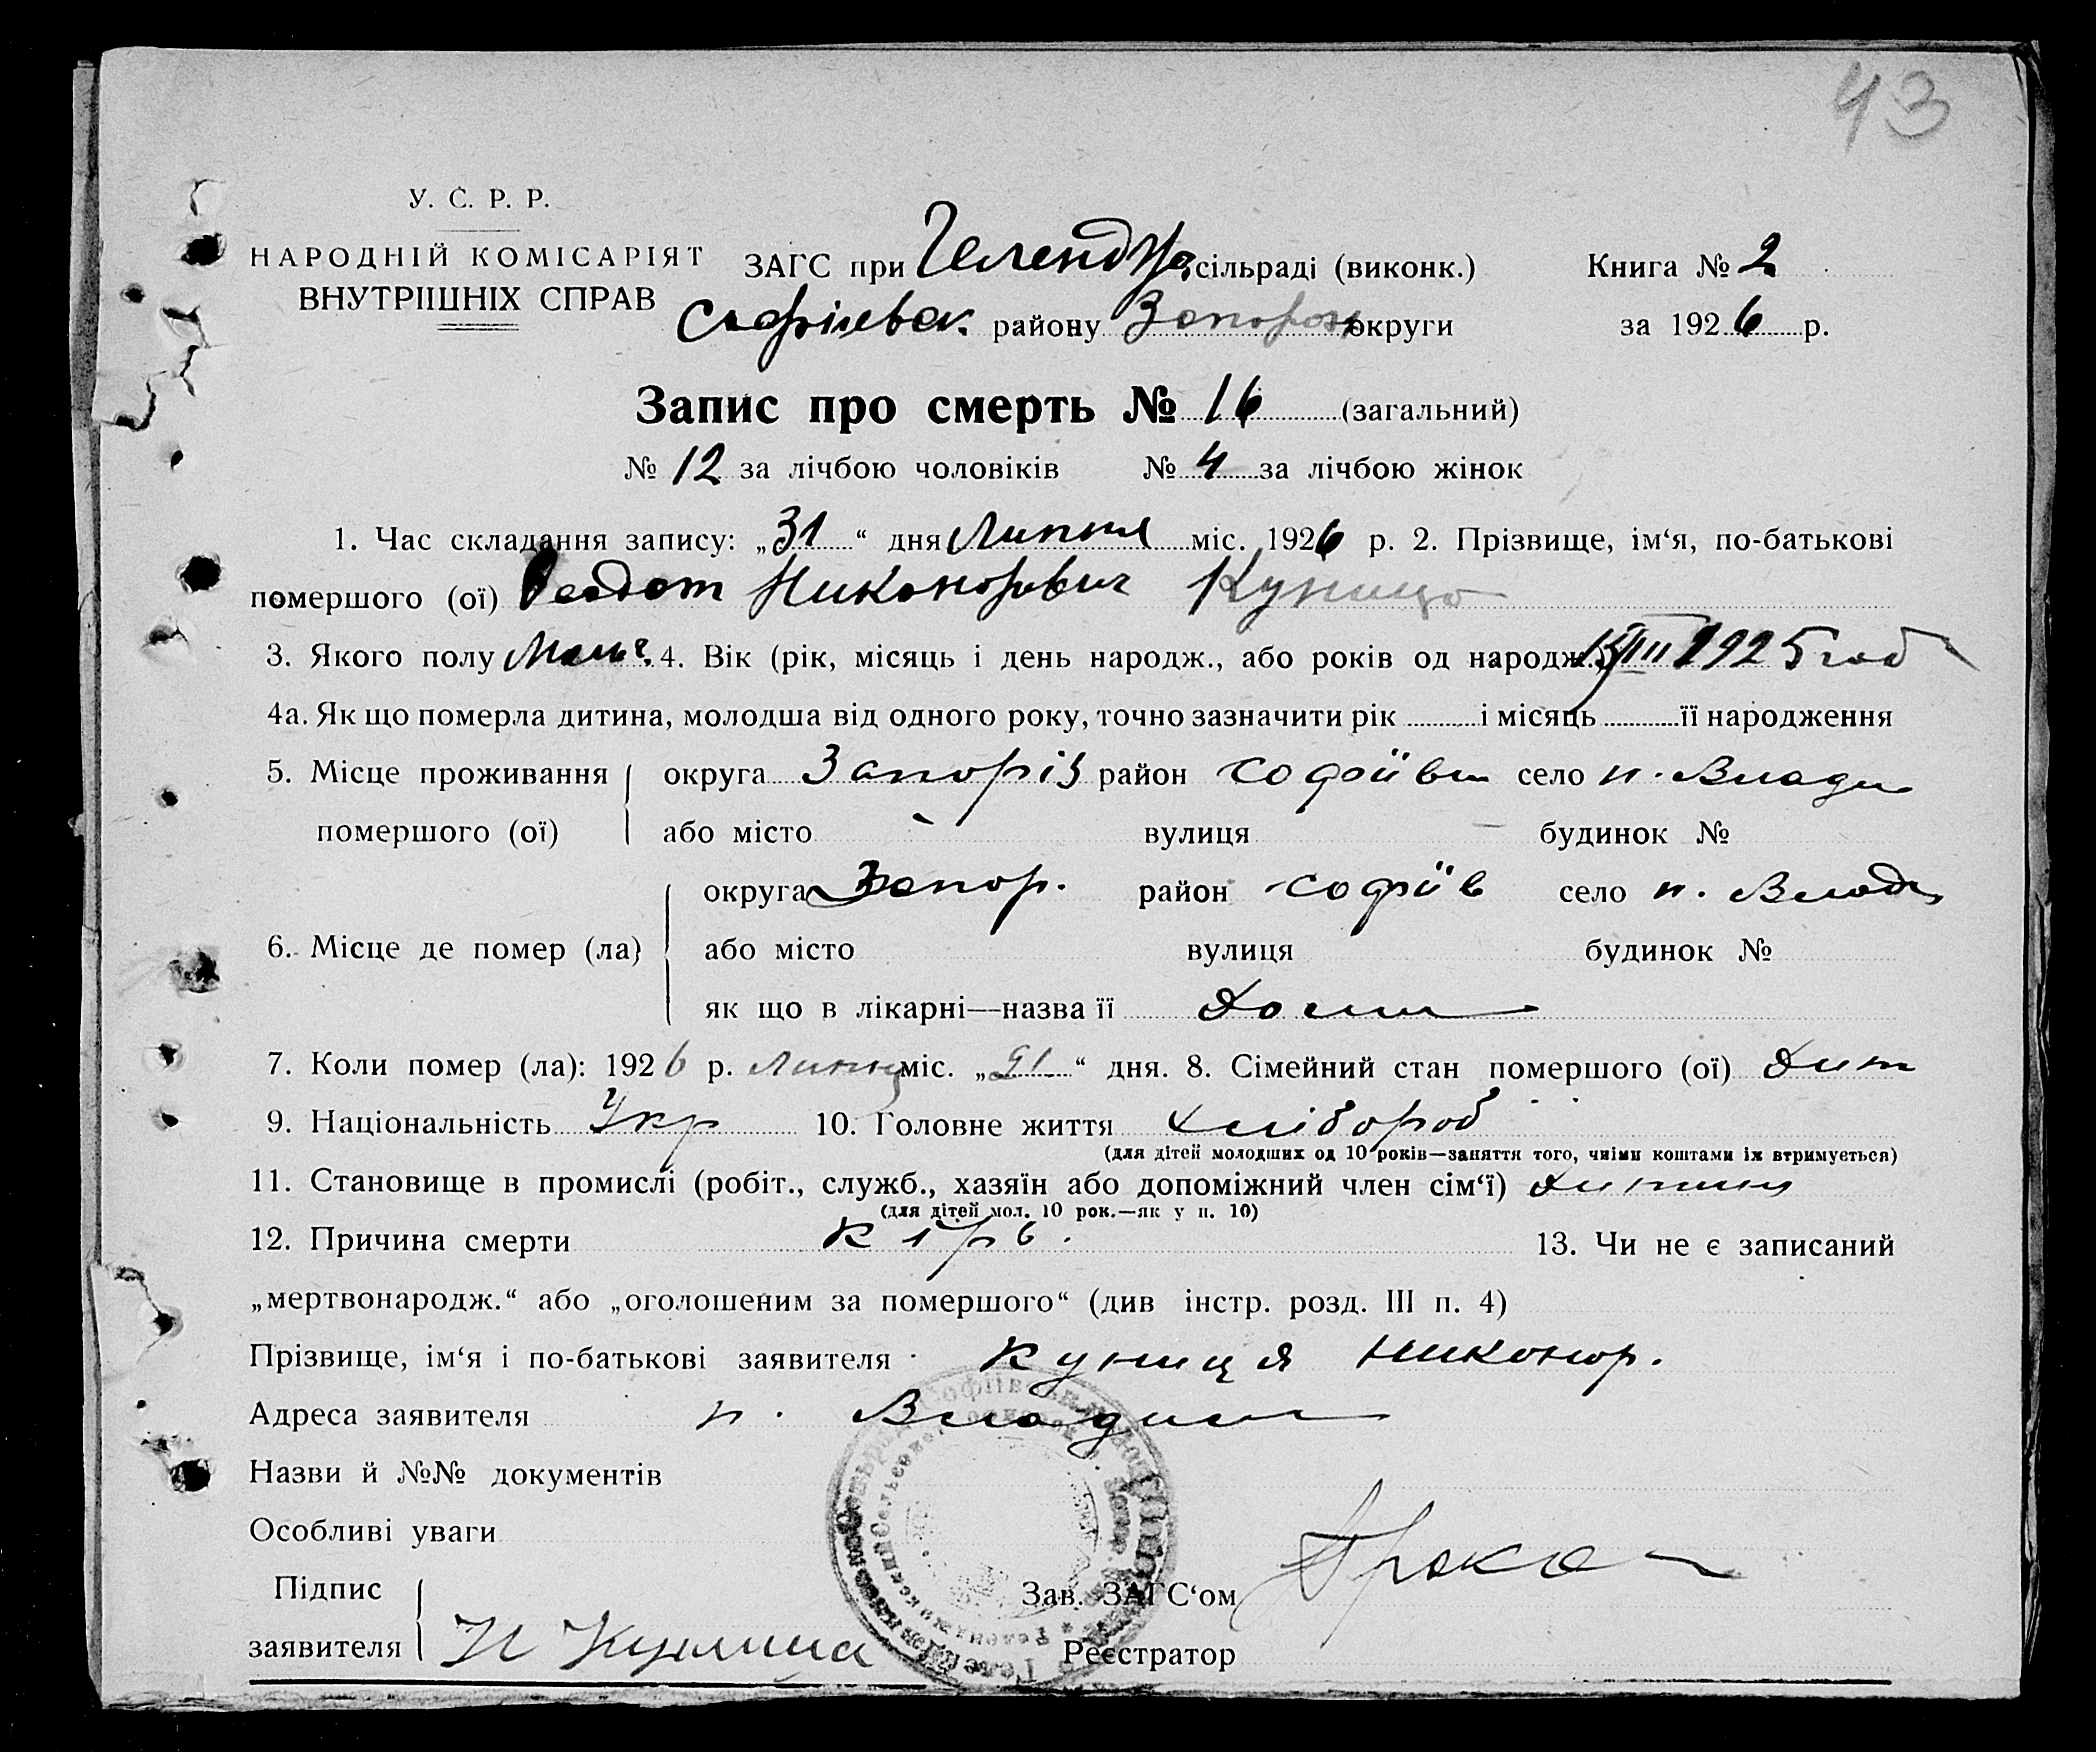 43
У. С. Р. Р.
НАРОДНІЙ КОМІСАРІЯТ
ВНУТРІШНІХ СПРАВ
ЗАГС при сільраді (виконк.) Книга № 2
району Запорож округи за 1926 р.
Запис про смерть № 16 (загальний)
№ 12 за лічбою чоловіків № 4 за лічбою жінок
1. Час складання запису: „31“ дня Липня міс. 1926 р. 2. Прізвище, ім‘я, по-батькові
помершого (ої) Феодот Никонорович Куница
3. Якого полу 4. Вік (рік, місяць і день народж., або років од народж. 1925 год
4а. Як що померла дитина, молодша від одного року, точно зазначити рік і місяць її народження
5. Місце проживання помершого (ої) округа Запоріз район Софіїв село н. Влади
або місто вулиця будинок №
6. Місце де помер (ла) округа Запор. район Софіїв село н. Влад
або місто вулиця будинок №
як що в лікарні—назва її Дома
7. Коли помер (ла): 1926 р. Липн міс. „ “ дня. 8. Сімейний стан помершого (ої) Дит
9. Національність Укр 10. Головне життя Хлібороб
(для дітей молодших од 10 років—заняття того, чиїми коштами їх втримується)
11. Становище в промислі (робіт., служб., хазяїн або допоміжний член сім‘ї) Дитина
(для дітей мол. 10 рок.—як у п. 10)
12. Причина смерти Кірь. 13. Чи не є записаний
„мертвонародж.“ або „оголошеним за помершого“ (див інстр. розд. III п. 4)
Прізвище, ім‘я і по-батькові заявителя Куниця Никонор.
Адреса заявителя н. Владим
Назви й №№ документів
Особливі уваги
Підпис заявителя Н Куница
Зав. ЗАГС‘ом
Реєстратор